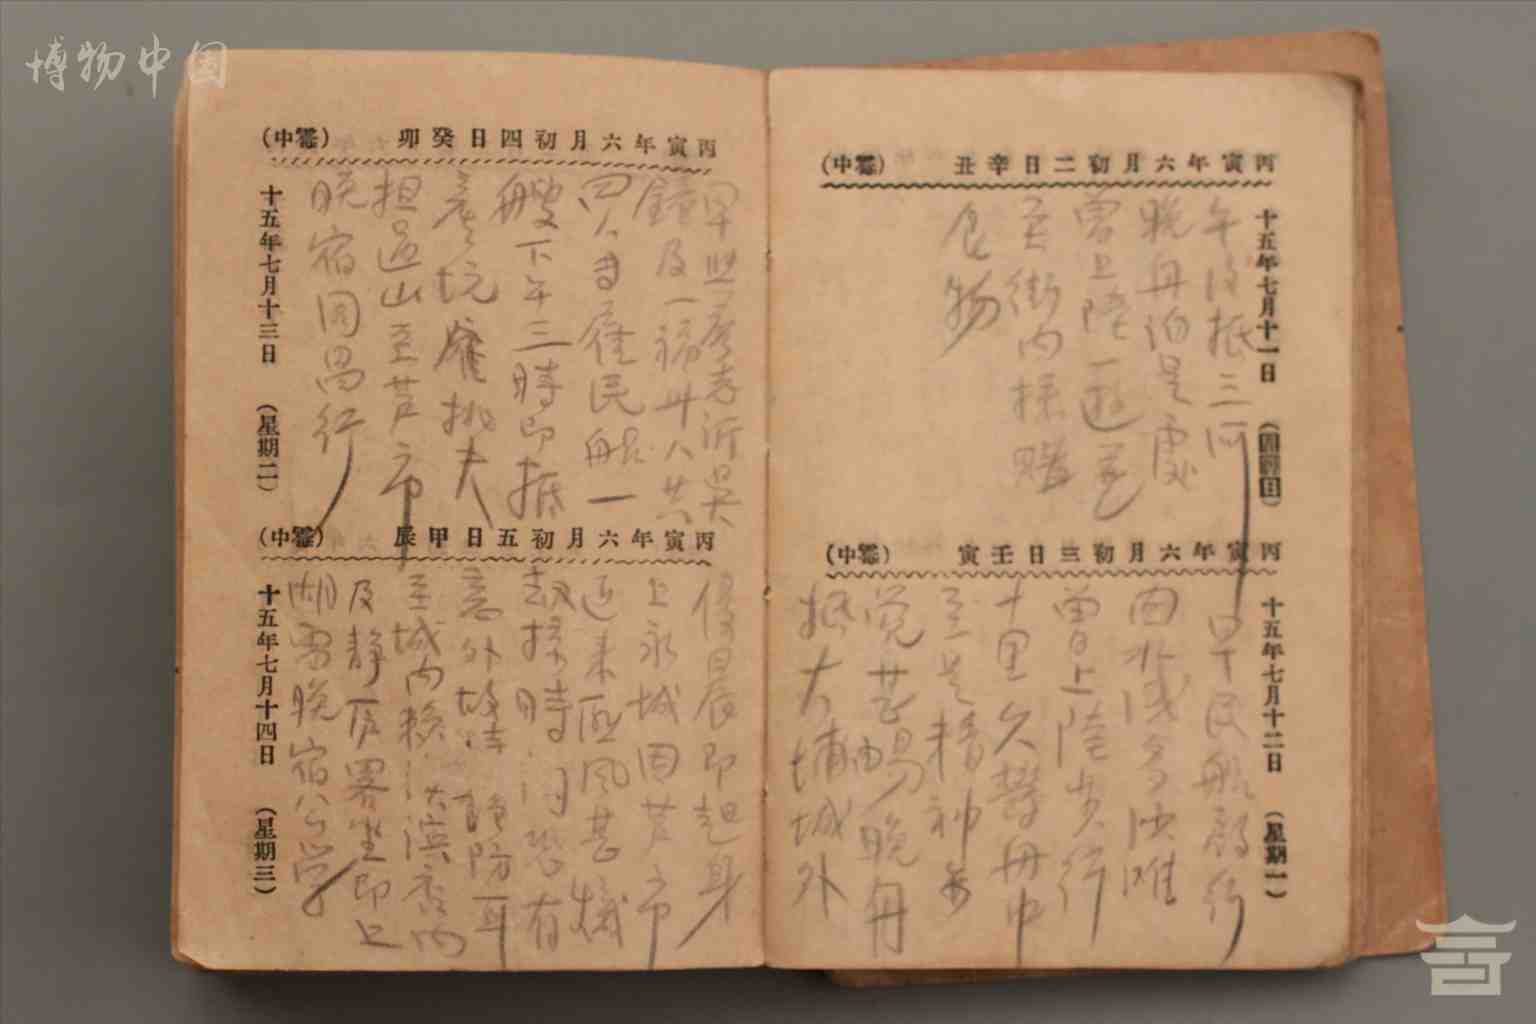 博物中国
丙寅年六月初二日辛丑 (中霉)
十五年七月十一日 (星期日)
午後抵三河
晚舟泊是處
曾上陸一遊並
至街內採購
食物
丙寅年六月初三日壬寅 (中霉)
十五年七月十二日 (星期一)
早民船啟行
因水淺多沙灘
曾上陸步行
十里久鬱舟中
至是精神亦
覺甚暢晚舟
抵大埔城外
丙寅年六月初四日癸卯 (中霉)
十五年七月十三日 (星期二)
早與
鐘及一
四人共雇民船一
艘下午三時即抵
坑雇挑夫
担過山至芦市
晚宿同昌行
丙寅年六月初五日甲辰 (中霉)
十五年七月十四日 (星期三)
侵晨即起身
上永城因芦市
近來匪風甚熾
劫掠時聞恐有
意外故特謹防耳
至城內賴
及靜 畧坐即上
湖雷晚宿公学